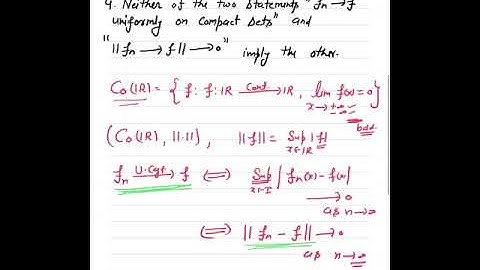 4. Neither of the two statements "fn→f
uniformly on compact sets" and
"||fn → f||→0" imply the other.
C₀(IR) = { f: f: IR Cont.→ IR, lim f(x)=0 }
x→±∞
bdd.
(C₀(IR), ||·||), ||f|| = Sup |f|
x∈IR
fn U.Cgt→ f ⟺ Sup | fn(x) - f(x)|
x∈I
→ 0
as n→∞
⟺ || fn - f|| → 0
as n→∞